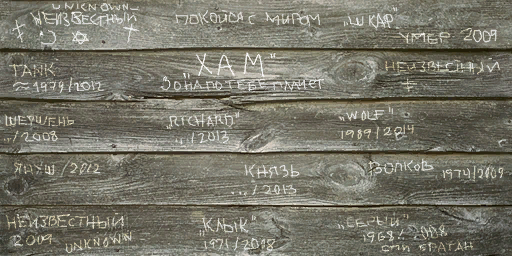 UNKNOWN
НЕИЗВЕСТНЫЙ
ПОКОЙСЯ С МИРОМ
„ШКАР"
УМЕР 2009
TANK
≈1979/2012
„ХАМ"
ЗОНА ПО ТЕБЕ ПЛАЧЕТ
НЕИЗВЕСТНЫЙ
ШЕРШЕНЬ
../2008
„RICHARD"
.../2013
„WOLF"
1989/2014
ЯНУШ /2012
КНЯЗЬ
.../2013
ВОЛКОВ 1974/2009
НЕИЗВЕСТНЫЙ
2009 UNKNOWN
„КЛЫК"
1971/2008
„СЕРЫЙ"
1968/2008
СПИ БРАТАН